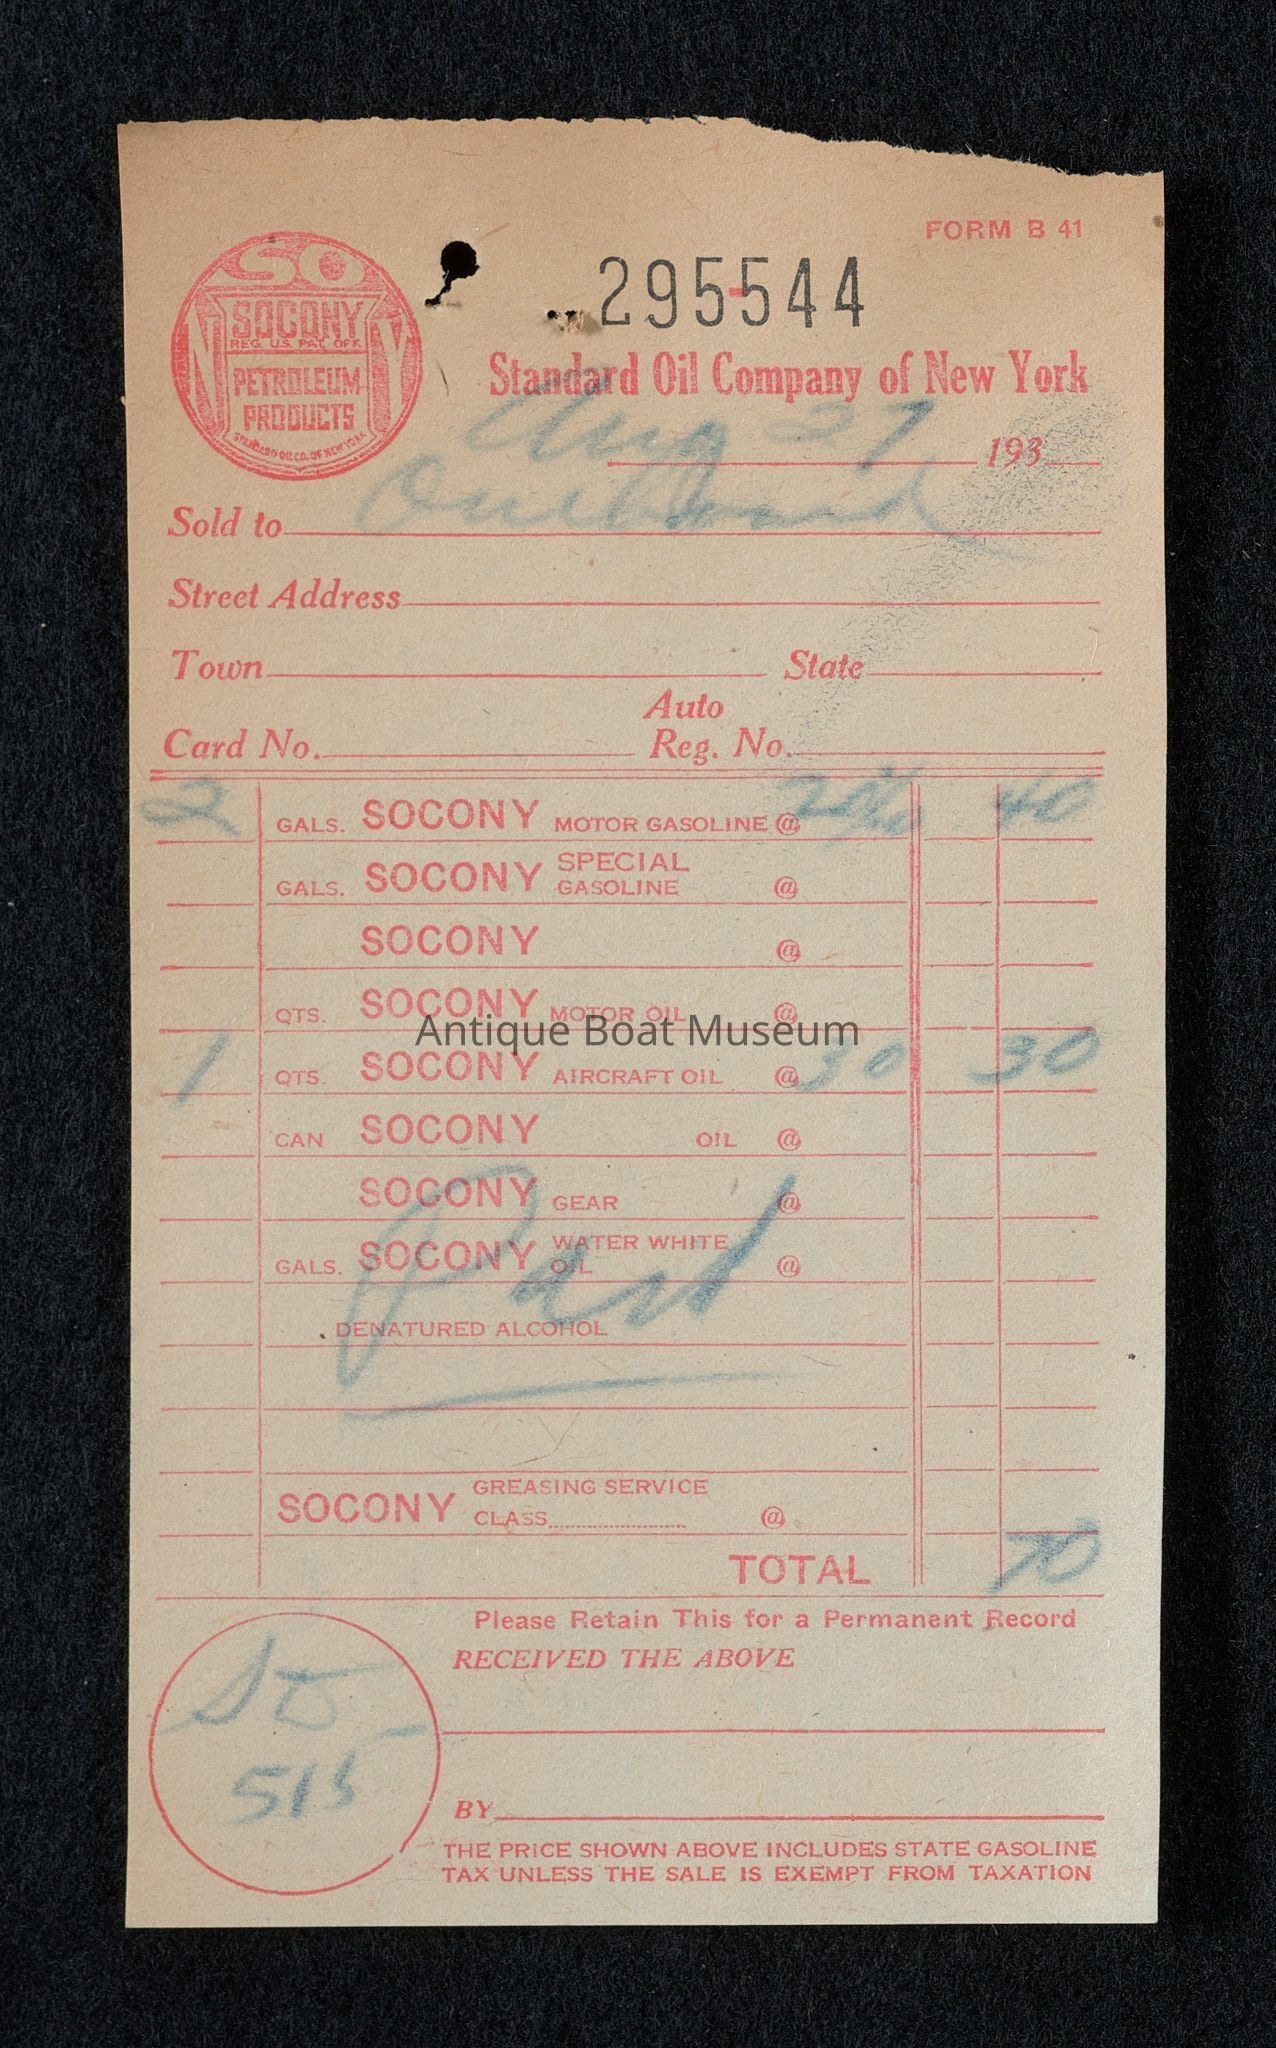 FORM B 41
SO
N SOCONY Y
REG. U.S. PAT. OFF.
PETROLEUM
PRODUCTS
STANDARD OIL CO. OF NEW YORK
295544
Standard Oil Company of New York
Aug 27 193
Sold to Outboard
Street Address
Town State
Auto
Card No. Reg. No.
2 GALS. SOCONY MOTOR GASOLINE @ 40
GALS. SOCONY SPECIAL GASOLINE @
SOCONY @
QTS. SOCONY MOTOR OIL @
Antique Boat Museum
1 QTS. SOCONY AIRCRAFT OIL @ 30 30
CAN SOCONY OIL @
SOCONY GEAR @
GALS. SOCONY WATER WHITE OIL @
Paid
DENATURED ALCOHOL
SOCONY GREASING SERVICE
CLASS @
TOTAL 70
Please Retain This for a Permanent Record
RECEIVED THE ABOVE
515
BY
THE PRICE SHOWN ABOVE INCLUDES STATE GASOLINE
TAX UNLESS THE SALE IS EXEMPT FROM TAXATION